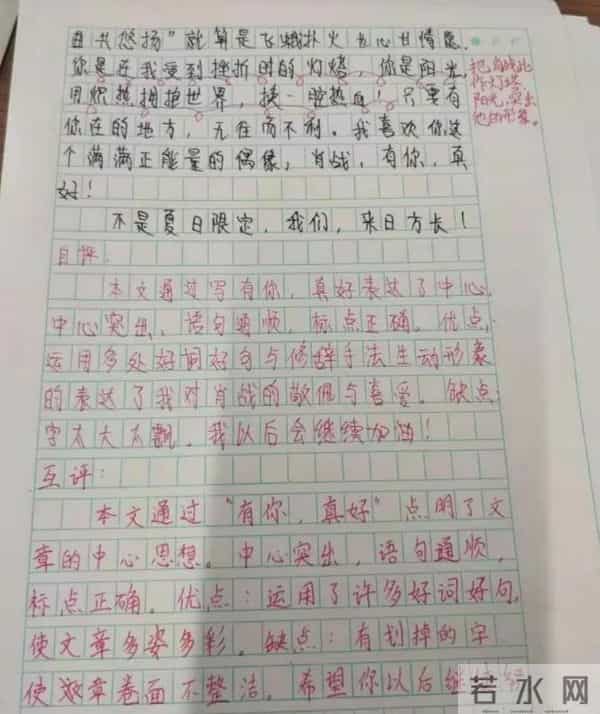 且共悠扬”就算是飞蛾扑火也心甘情愿.
你是在我受到挫折时的灯塔,你是阳光,
用炽热拥抱世界,挟一腔热血!只要有
你在的地方,无往而不利。我喜欢你这
个满满正能量的偶像,肖战,有你,真
好!
不是夏日限定,我们,来日方长!
把肖战比
作灯塔
阳光,突出
他的形象。
自评:
本文通过写有你,真好表达了中心,
中心突出、语句通顺,标点正确。优点,
运用多处好词好句与修辞手法生动形象
的表达了我对肖战的敬佩与喜爱。缺点:
字太大太飘,我以后会继续加油!
互评:
本文通过“有你,真好”点明了文
章的中心思想。中心突出,语句通顺,
标点正确。优点:运用了许多好词好句,
使文章多姿多彩。缺点:有划掉的字
使文章卷面不整洁。希望你以后继续
若水网
ruoshui.com